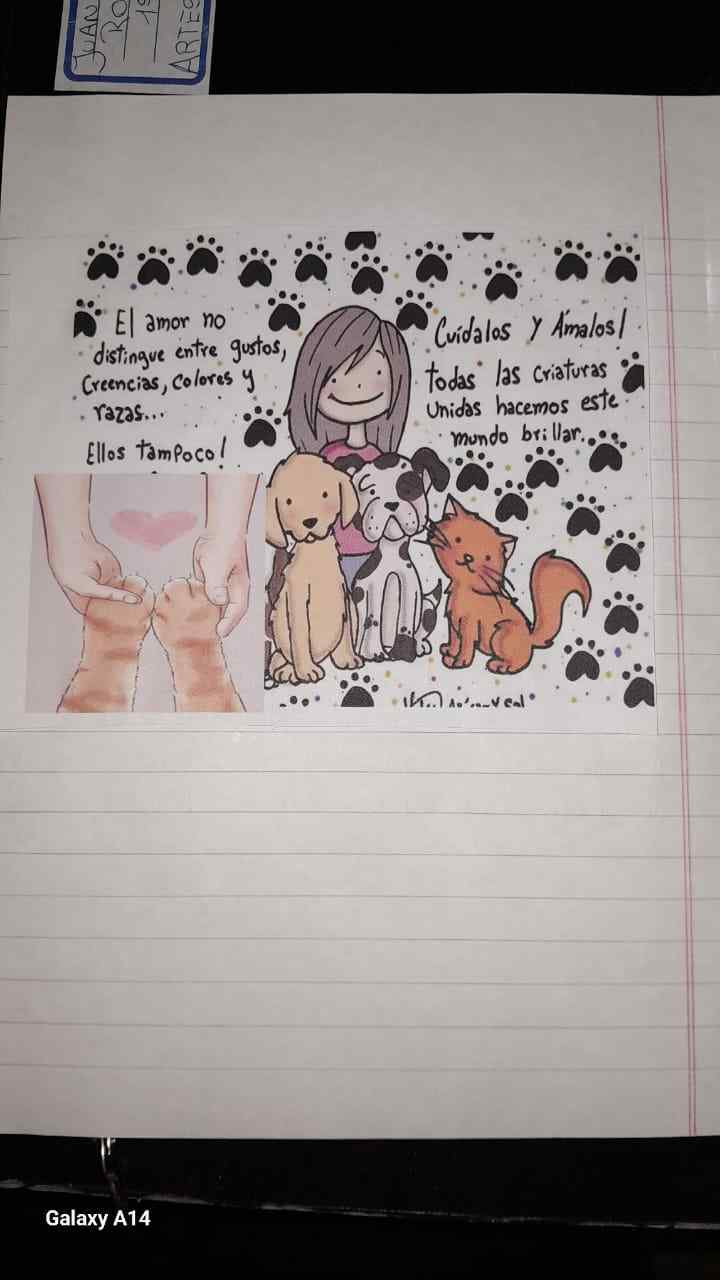 JUAN
RO
19
ARTES
El amor no
distingue entre gustos,
Creencias, Colores y
razas...
Ellos Tampoco!
Cuídalos y Ámalos!
todas las criaturas
Unidas hacemos este
mundo brillar...
Galaxy A14